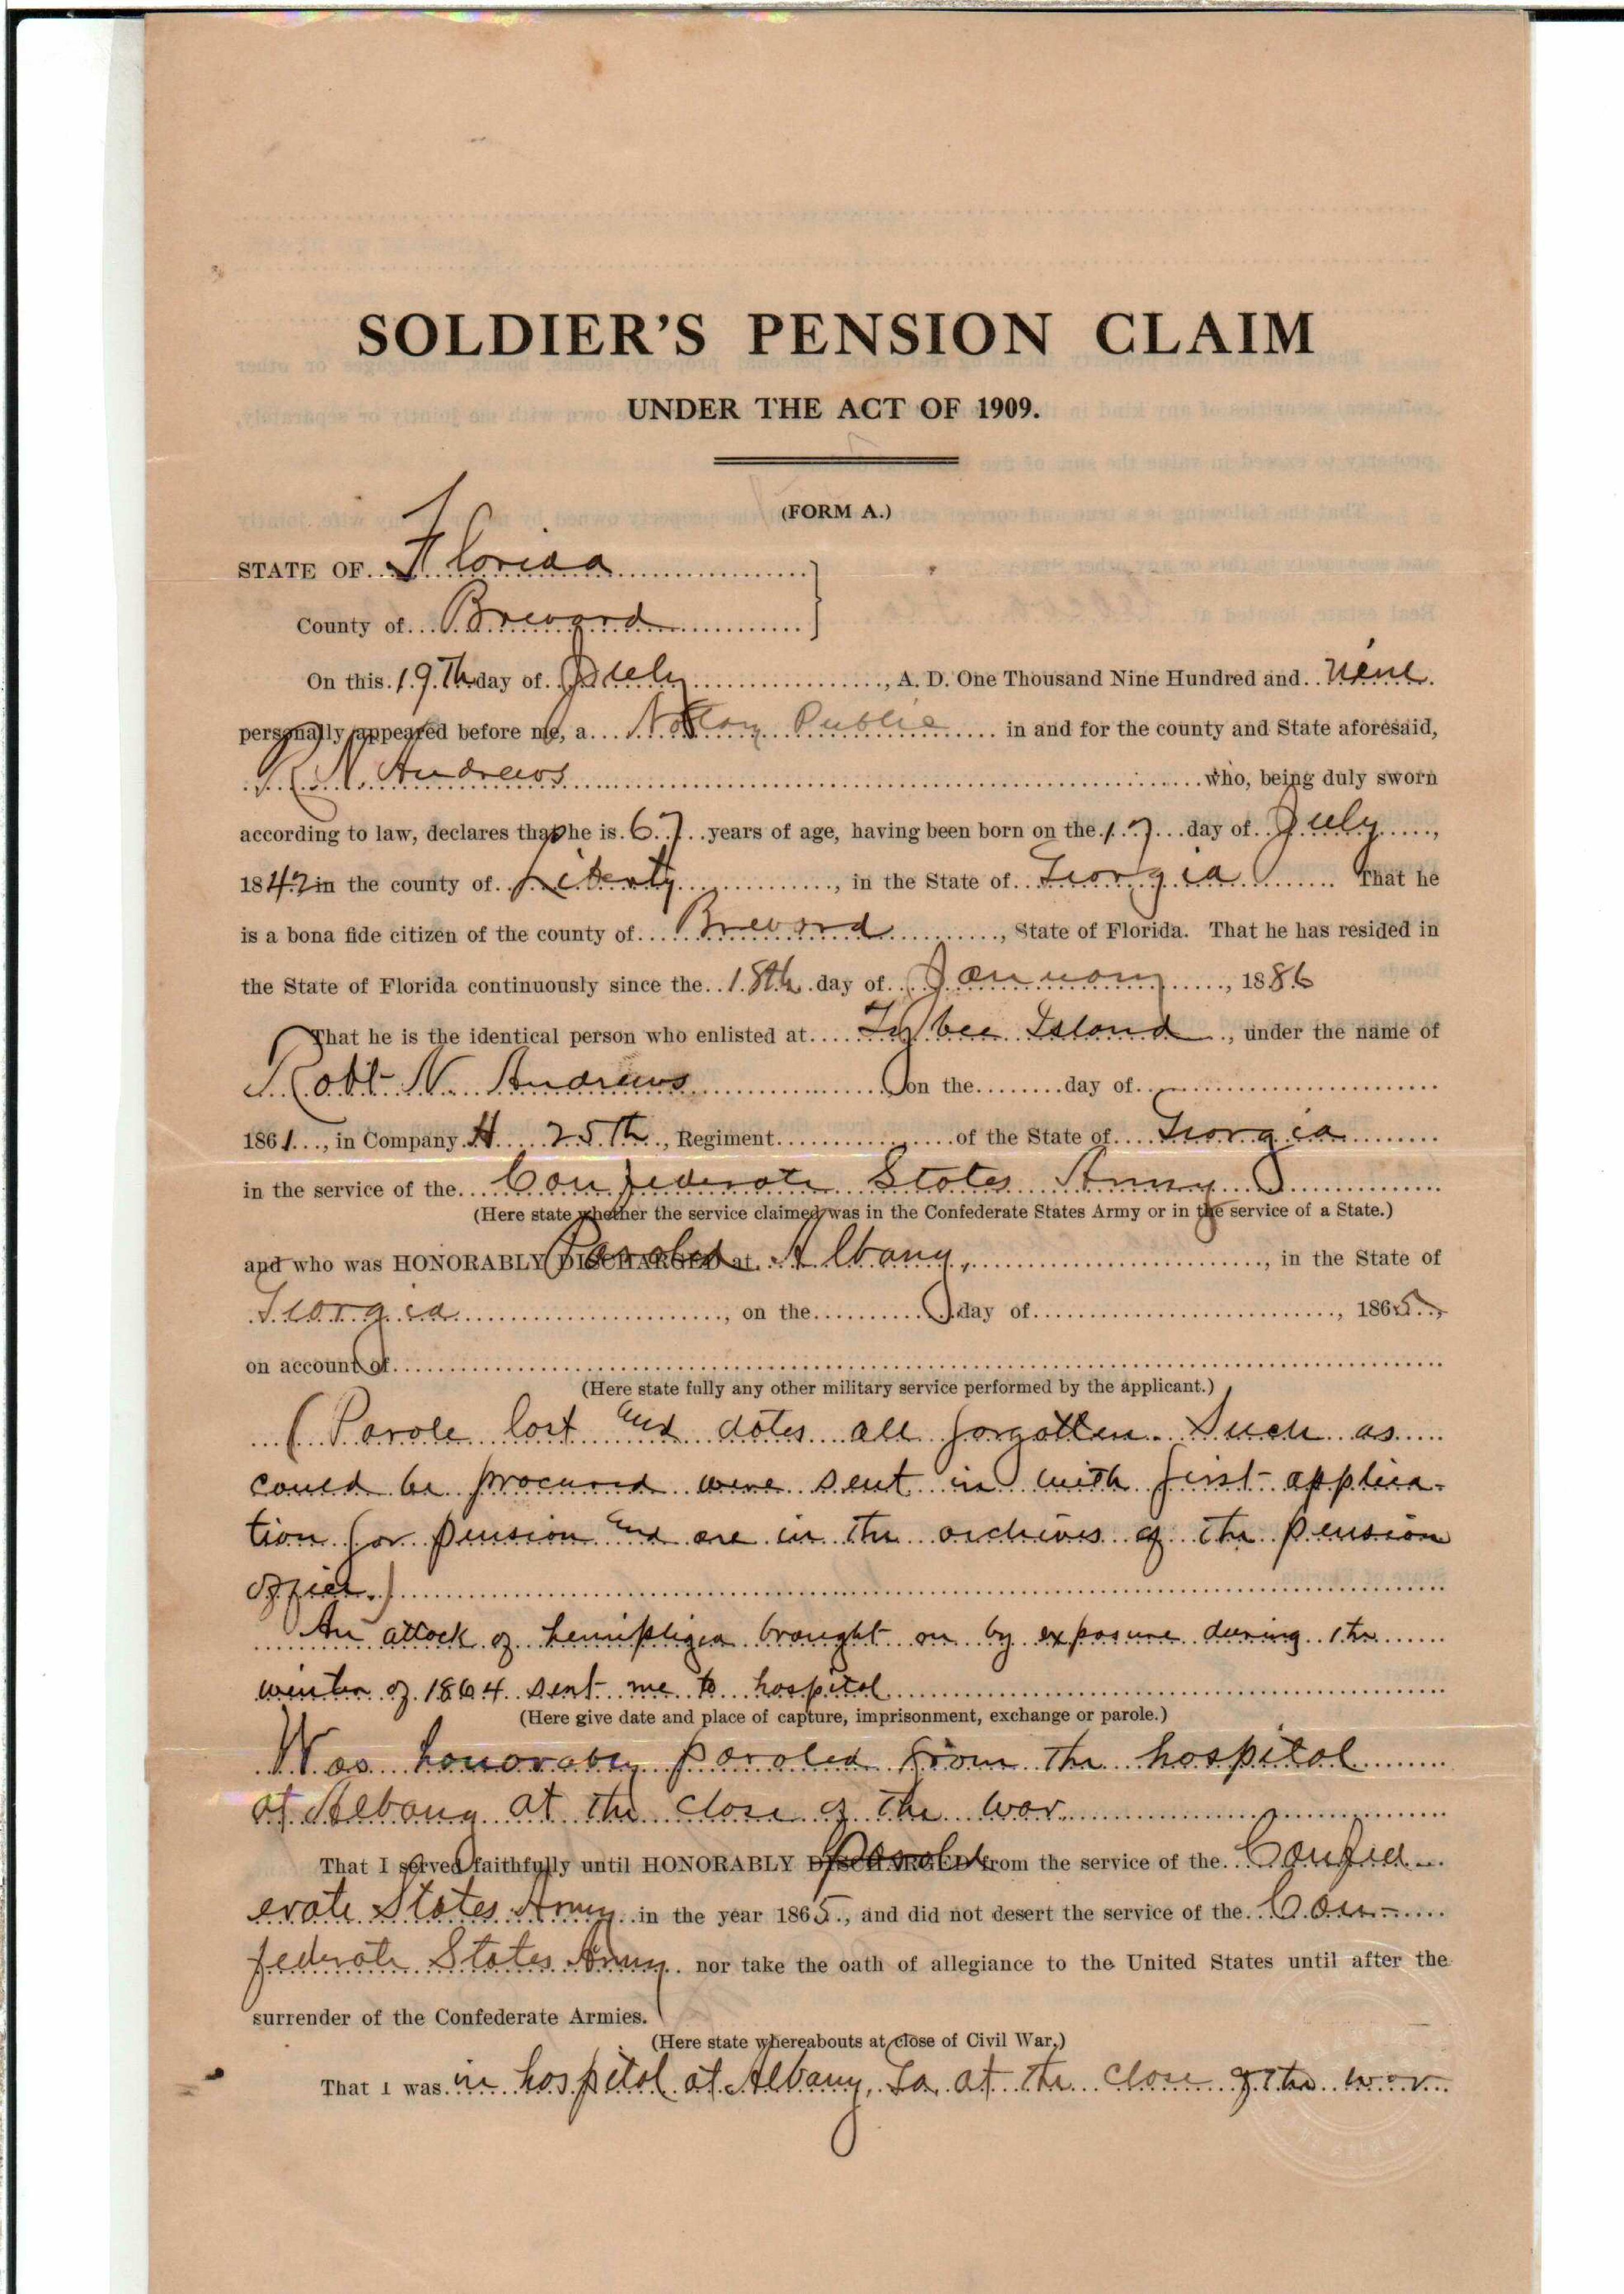 SOLDIER'S PENSION CLAIM
UNDER THE ACT OF 1909.
(FORM A.)
STATE OF Florida
County of Brevard
On this 19th day of July, A. D. One Thousand Nine Hundred and nine
personally appeared before me, a Notary Public in and for the county and State aforesaid,
R. N. Andrews who, being duly sworn
according to law, declares that he is 67 years of age, having been born on the 17 day of July,
1842 in the county of Liberty, in the State of Georgia That he
is a bona fide citizen of the county of Brevard, State of Florida. That he has resided in
the State of Florida continuously since the 18th day of January, 1886
That he is the identical person who enlisted at Tybee Island, under the name of
Robt N. Andrews on the day of
1861, in Company H 25th, Regiment of the State of Georgia
in the service of the Confederate States Army
(Here state whether the service claimed was in the Confederate States Army or in the service of a State.)
and who was HONORABLY DISCHARGED Paroled at Albany, in the State of
Georgia, on the day of, 1865,
on account of
(Here state fully any other military service performed by the applicant.)
(Parole lost and dates all forgotten. Such as
could be procured were sent in with first applica-
tion for pension and are in the archives of the pension
office.)
An attack of hemipligea brought on by exposure during the
winter of 1864 sent me to hospital
(Here give date and place of capture, imprisonment, exchange or parole.)
Was honoraby paroled from the hospital
at Albany at the close of the war
That I served faithfully until HONORABLY DISCHARGED Paroled from the service of the Confed-
erate States Army in the year 1865, and did not desert the service of the Con-
federate States Army nor take the oath of allegiance to the United States until after the
surrender of the Confederate Armies.
(Here state whereabouts at close of Civil War,)
That I was in hospital at Albany, Ga. at the close of the war